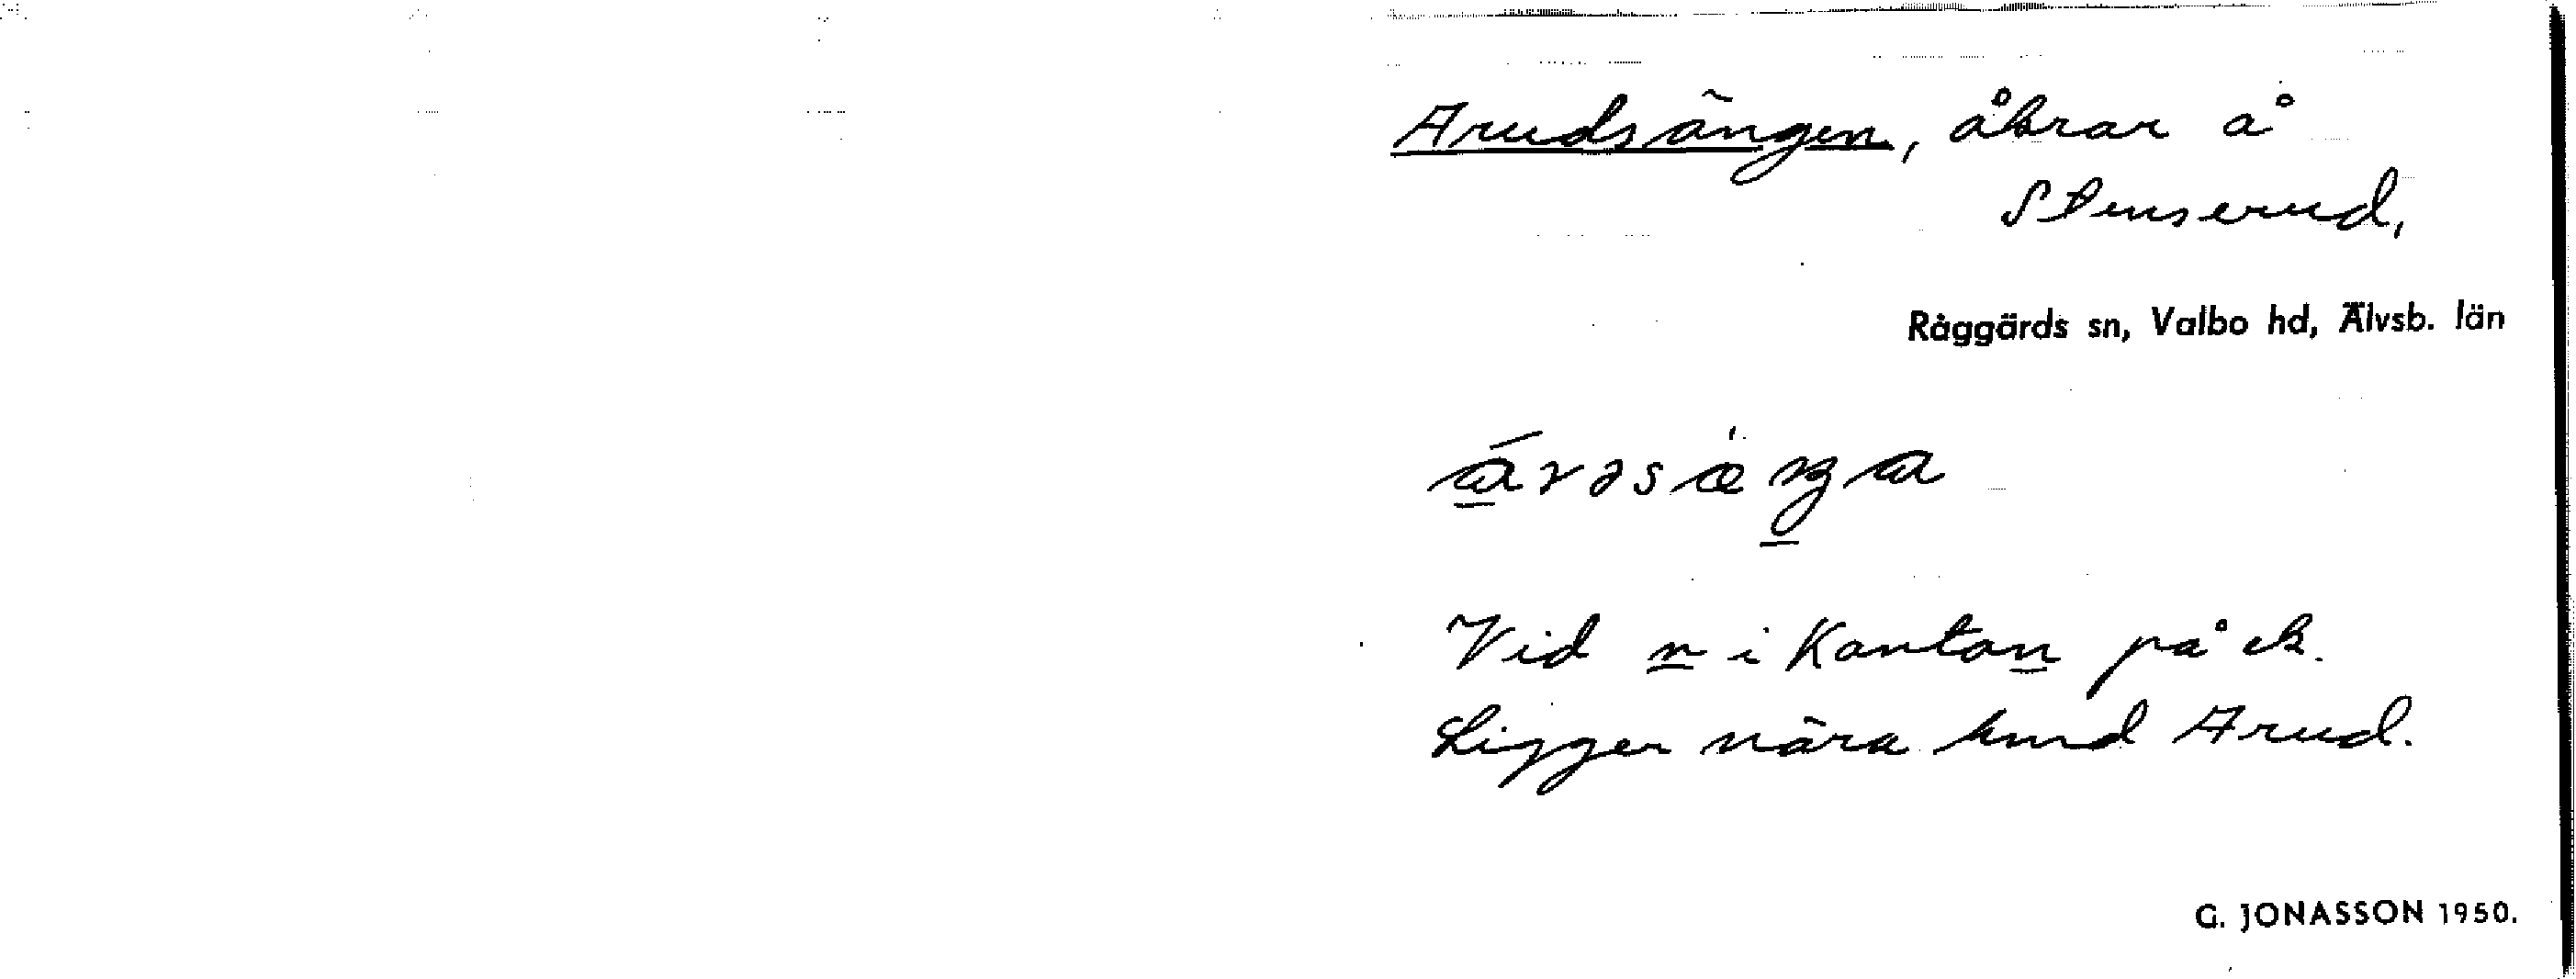 Arudsängen, åkrar å
Stenserud,
Råggärds sn, Valbo hd, Älvsb. län
Vid n i Kantan på ek.
Ligger nära hmd Arud.
G. JONASSON 1950.